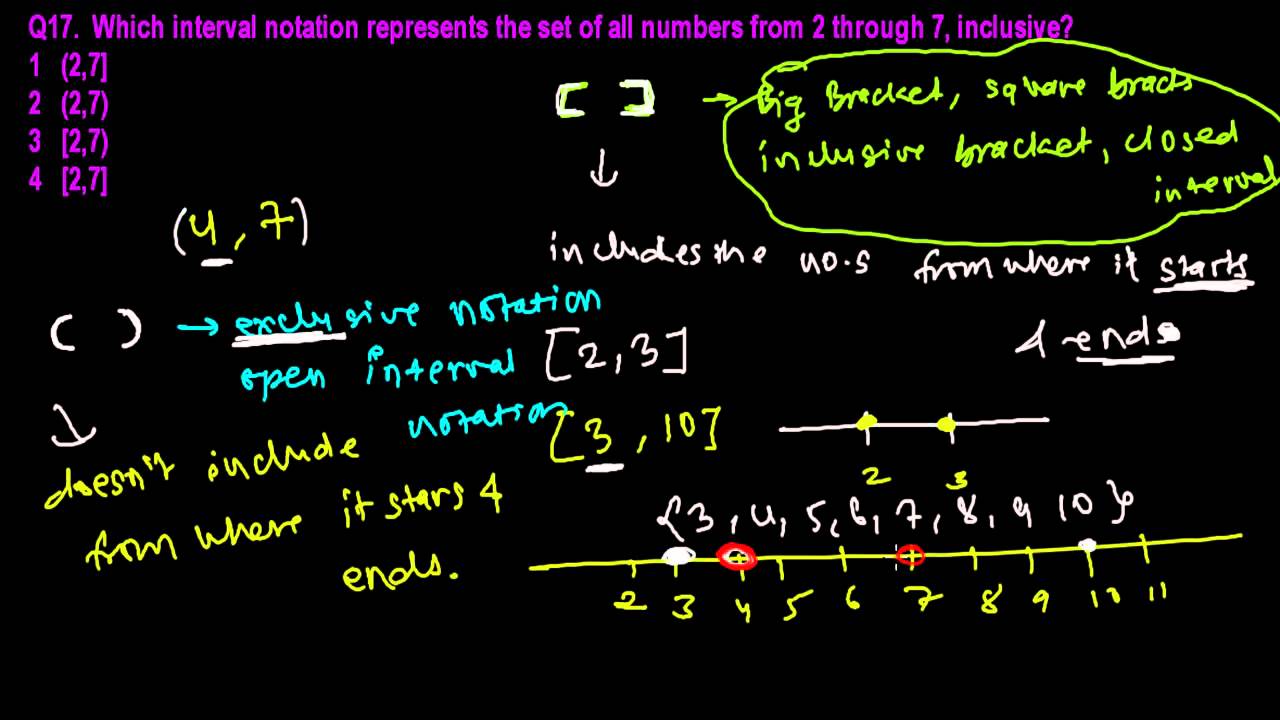 Q17. Which interval notation represents the set of all numbers from 2 through 7, inclusive?
1 (2,7]
2 (2,7)
3 [2,7)
4 [2,7]
[ ] → Big Bracket, square bracts
inclusive bracket, closed
interval
↓
includes the no.s from where it starts
& ends
(4, 7)
( ) → exclusive notation
open interval
notation
↓
doesn't include
from where it stars &
ends.
[2, 3]
[3, 10]
2 3
{3, 4, 5, 6, 7, 8, 9 10}
2 3 4 5 6 7 8 9 10 11